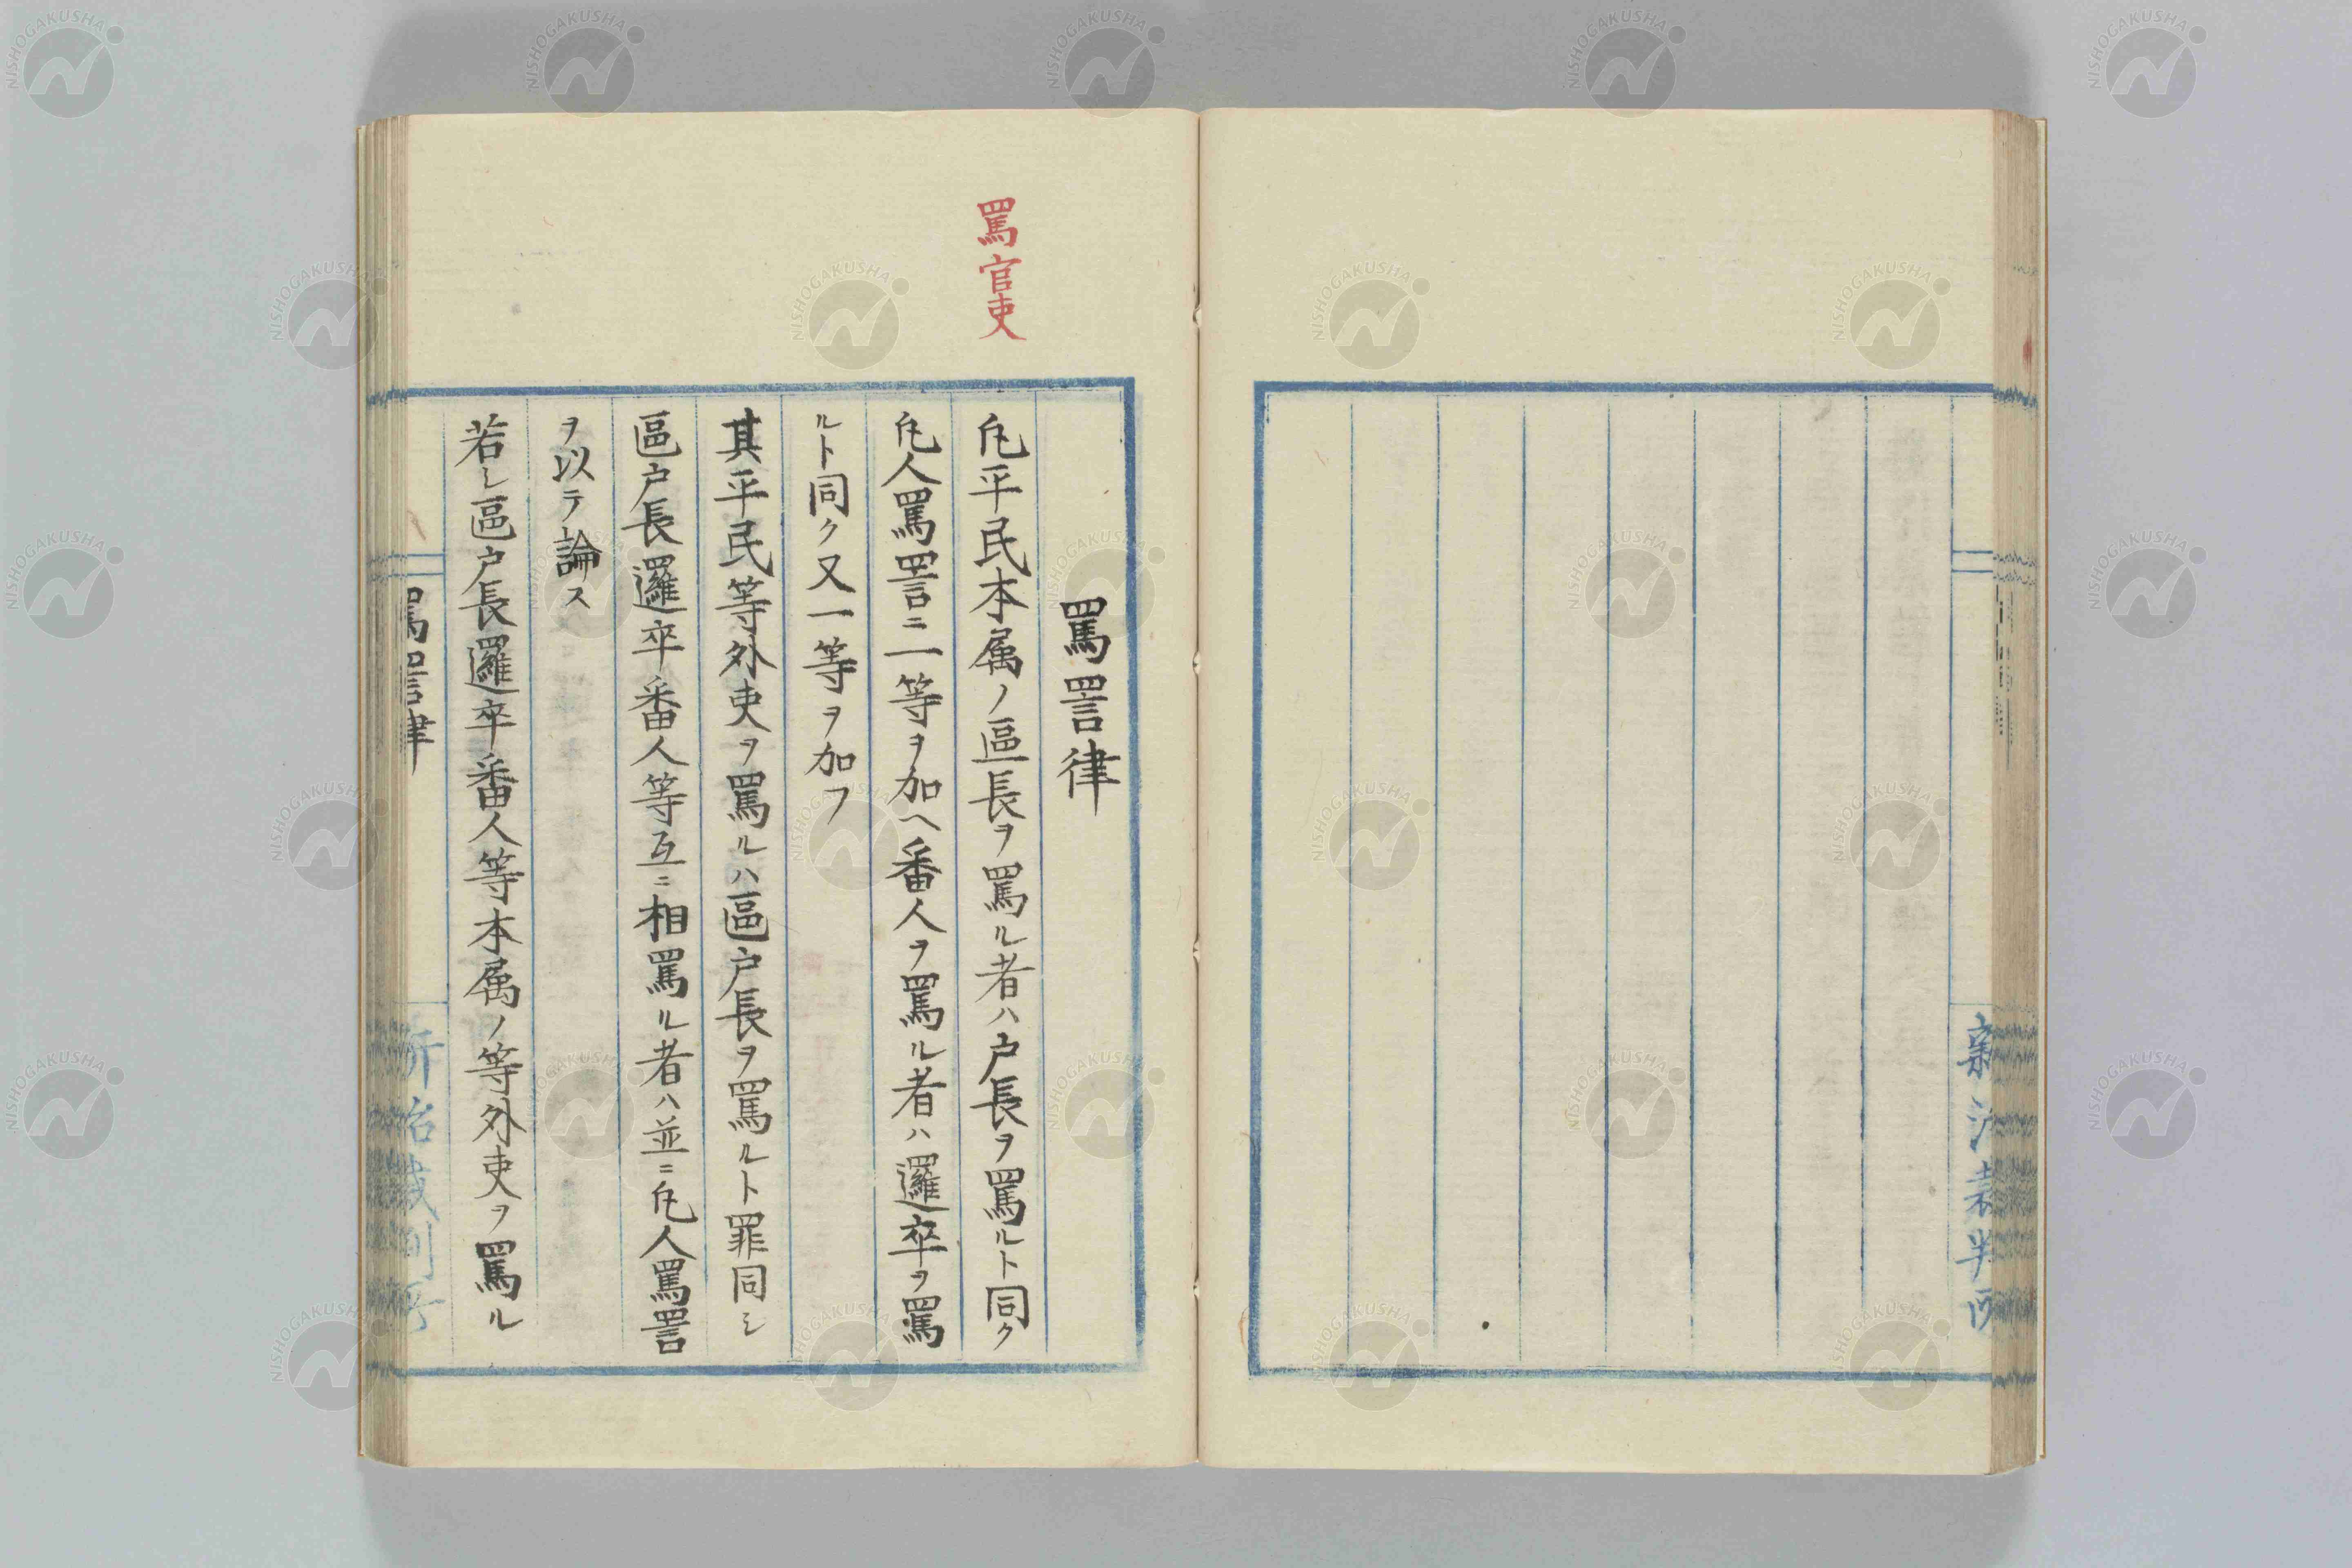 新治裁判所
罵官吏
罵詈律
凡平民本属ノ區長ヲ罵ル者ハ户長ヲ罵ルト同ク
凡人罵詈ニ一等ヲ加ヘ番人ヲ罵ル者ハ邏卒ヲ罵
ルト同ク又一等ヲ加フ
其平民等外吏ヲ罵ルハ區户長ヲ罵ルト罪同シ
區户長邏卒番人等互ニ相罵ル者ハ並ニ凡人罵詈
ヲ以テ論ス
若シ區户長邏卒番人等本属ノ等外吏ヲ罵ル
罵詈律
新治裁判所
NISHOGAKUSHA